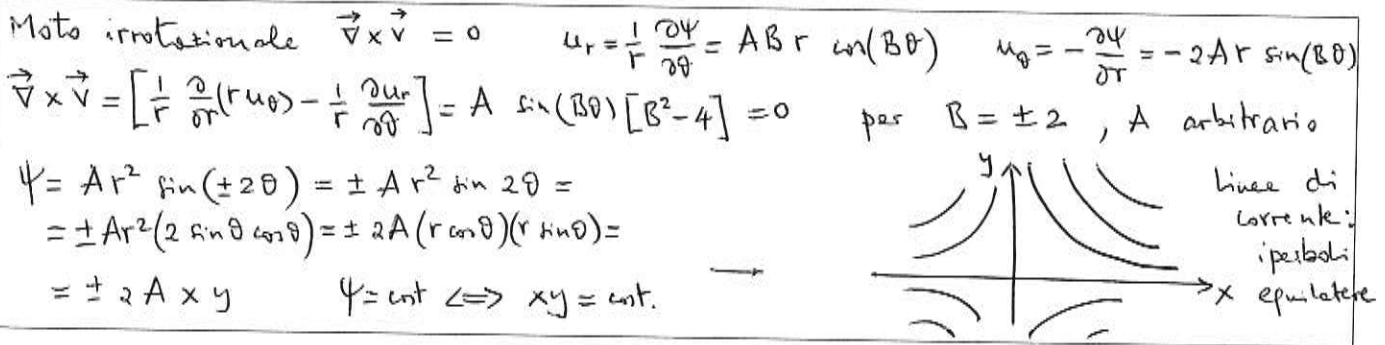 Moto irrotazionale ∇⃗ × v⃗ = 0 u_r = 1/r ∂Ψ/∂θ = A B r cos(Bθ) u_θ = -∂Ψ/∂r = -2Ar sin(Bθ)
∇⃗ × v⃗ = [1/r ∂/∂r (r u_θ) - 1/r ∂u_r/∂θ] = A sin(Bθ) [B² - 4] = 0 per B = ±2 , A arbitrario
Ψ = A r² sin(±2θ) = ± A r² sin 2θ =
= ± A r² (2 sin θ cos θ) = ± 2A (r cos θ)(r sin θ) =
= ± 2 A x y Ψ = cost <=> xy = cost.
→
y
x
Linee di
corrente:
iperboli
equilatere